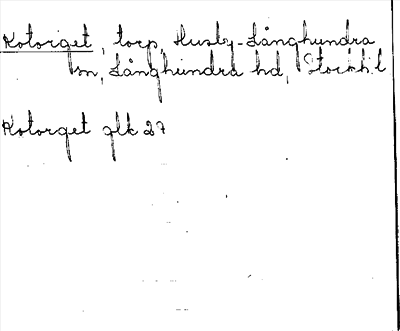 Kotorget, torp, Husby-Långhundra
sn, Långhundra hd, Stockh. l
Kotorget glk 27